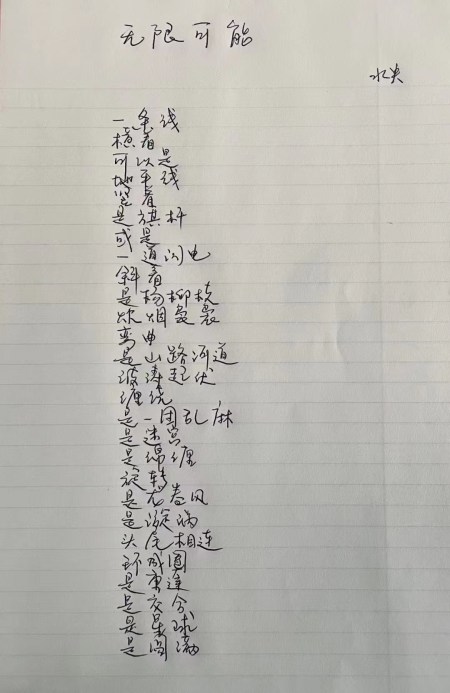 无限可能
一条线
横着
可以是
地平线
竖着
是旗杆
或是
一道闪电
斜着
是杨柳枝
炊烟袅袅
弯曲
是山路河道
波涛起伏
缠绕
是一团乱麻
是迷宫
是绵缠
旋转
是龙卷风
是漩涡
头尾相连
环成圆
是重逢
是交合
是星球
是圆满